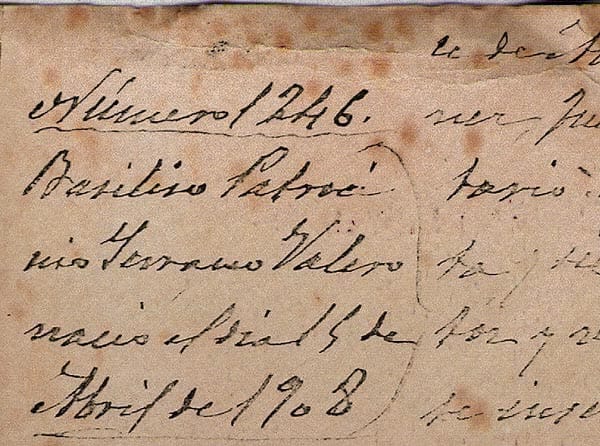 Número 1246.
Basiliso Patroci
nio Serrano Valero
nacio el dia 15 de
Abril de 1908
u de
ner, Jue
tario
ta y se
tor y re
te inse